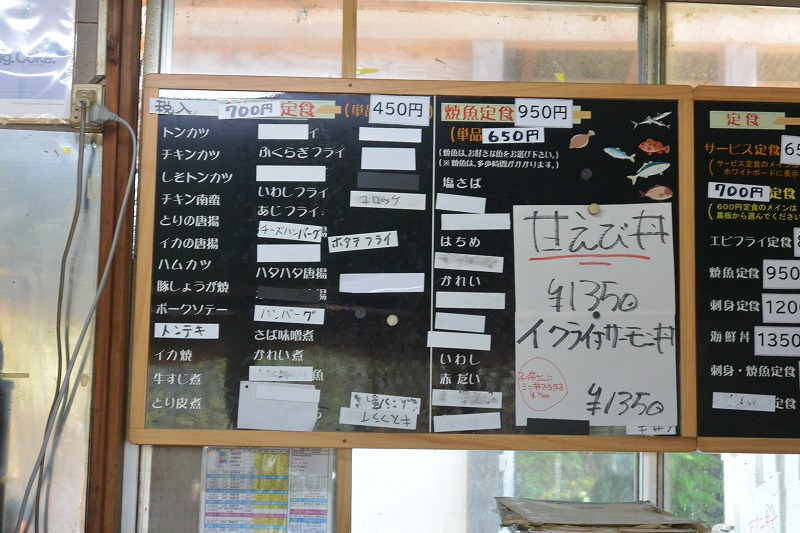 ng.Coke.
税入 700円 定食 (単品 450円
トンカツ
チキンカツ
しそトンカツ
チキン南蛮
とりの唐揚
イカの唐揚
ハムカツ
豚しょうが焼
ポークソテー
トンテキ
イカ焼
牛すじ煮
とり皮煮
イ
ふくらぎフライ
いわしフライ
あじフライ
チーズハンバーグ
ハタハタ唐揚
揚
ハンバーグ
さば味噌煮
かれい煮
魚
コロッケ
ホタテフライ
キスフライ
焼魚定食 950円
(単品 650円
(焼魚は、お好きな魚をお選び下さい。)
(※焼魚は、多少時間がかかります。)
塩さば
はちめ
かれい
いわし
赤だい
甘えび丼
¥1350
イクラ付サーモン丼
¥1350
定食
サービス定食 65
(サービス定食のメインは
ホワイトボードに表示
700円
(600円定食のメインは
黒板から選んでください
エビフライ定食
焼魚定食 950
刺身定食 120
海鮮丼 1350
刺身・焼魚定食
定食